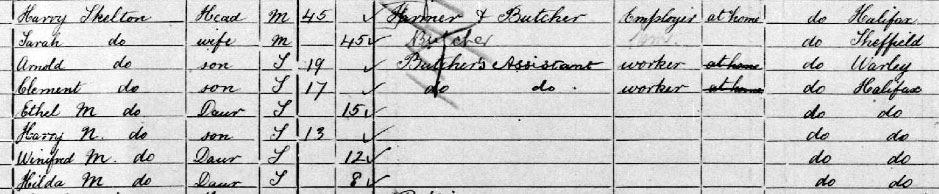 Harry Skelton Head M 45 Farmer & Butcher Employer at home do Halifax
Sarah do wife M 45 Butcher do Sheffield
Arnold do son S 19 Butcher's Assistant worker at home do Warley
Clement do son S 17 do do worker at home do Halifax
Ethel M do Daur S 15 do do
Harry N. do son S 13 do do
Winifred M. do Daur S 12 do do
Hilda M do Daur S 8 do do